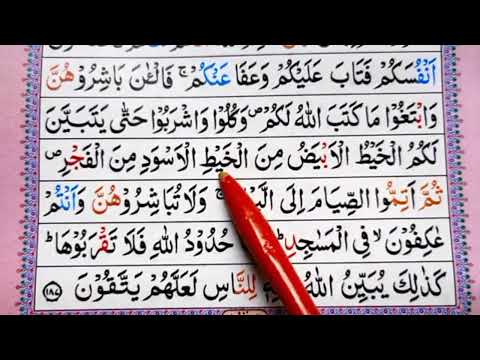 اَنْفُسَكُمْ فَتَابَ عَلَيْكُمْ وَعَفَا عَنْكُمْ ۚ فَالْـٰٔنَ بَاشِرُوْهُنَّ
وَابْتَغُوْا مَا كَتَبَ اللّٰهُ لَكُمْ ۪ وَكُلُوْا وَاشْرَبُوْا حَتّٰى يَتَبَيَّنَ
لَكُمُ الْخَيْطُ الْاَبْيَضُ مِنَ الْخَيْطِ الْاَسْوَدِ مِنَ الْفَجْرِ ۪
ثُمَّ اَتِمُّوا الصِّيَامَ اِلَى ۚ وَلَا تُبَاشِرُوْهُنَّ وَاَنْتُمْ
عٰكِفُوْنَ ۙ فِى الْمَسٰجِدِ ؕ حُدُوْدُ اللّٰهِ فَلَا تَقْرَبُوْهَا ؕ
كَذٰلِكَ يُبَيِّنُ اللّٰهُ لِلنَّاسِ لَعَلَّهُمْ يَتَّقُوْنَ ۝۱۸۷